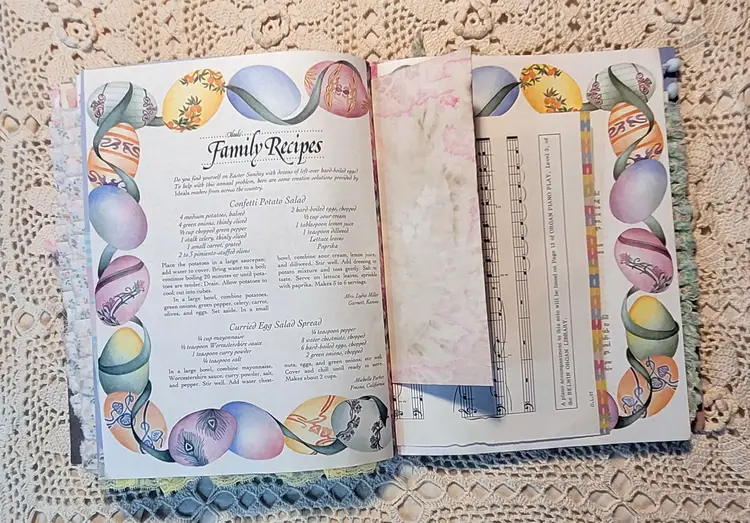 Ideals
Family Recipes
Do you find yourself on Easter Sunday with dozens of left-over hard-boiled eggs?
To help with this annual problem, here are some creative solutions provided by
Ideals readers from across the country.
Confetti Potato Salad
4 medium potatoes, baked
4 green onions, thinly sliced
½ cup chopped green pepper
1 stalk celery, thinly sliced
1 small carrot, grated
2 to 3 pimiento-stuffed olives
2 hard-boiled eggs, chopped
½ cup sour cream
1 tablespoon lemon juice
1 teaspoon dillweed
Lettuce leaves
Paprika
Place the potatoes in a large saucepan;
add water to cover. Bring water to a boil;
continue boiling 20 minutes or until pota-
toes are tender. Drain. Allow potatoes to
cool; cut into cubes.
In a large bowl, combine potatoes,
green onions, green pepper, celery, carrot,
olives, and eggs. Set aside. In a small
bowl, combine sour cream, lemon juice,
and dillweed. Stir well. Add dressing to
potato mixture and toss gently. Salt to
taste. Serve on lettuce leaves, sprinkle
with paprika. Makes 5 to 6 servings.
Mrs. Luella Miller
Garnett, Kansas
Curried Egg Salad Spread
¼ cup mayonnaise
½ teaspoon Worcestershire sauce
1 teaspoon curry powder
¼ teaspoon salt
⅛ teaspoon pepper
8 water chestnuts, chopped
6 hard-boiled eggs, chopped
2 green onions, chopped
In a large bowl, combine mayonnaise,
Worcestershire sauce, curry powder, salt,
and pepper. Stir well. Add water chest-
nuts, eggs, and green onions; stir well.
Cover and chill until ready to serve.
Makes about 2 cups.
Michelle Parker
Pomona, California
A piano accompaniment to this solo will be found on Page 13 of ORGAN PIANO PLAY, Level 3, of
the BELWIN ORGAN LIBRARY.